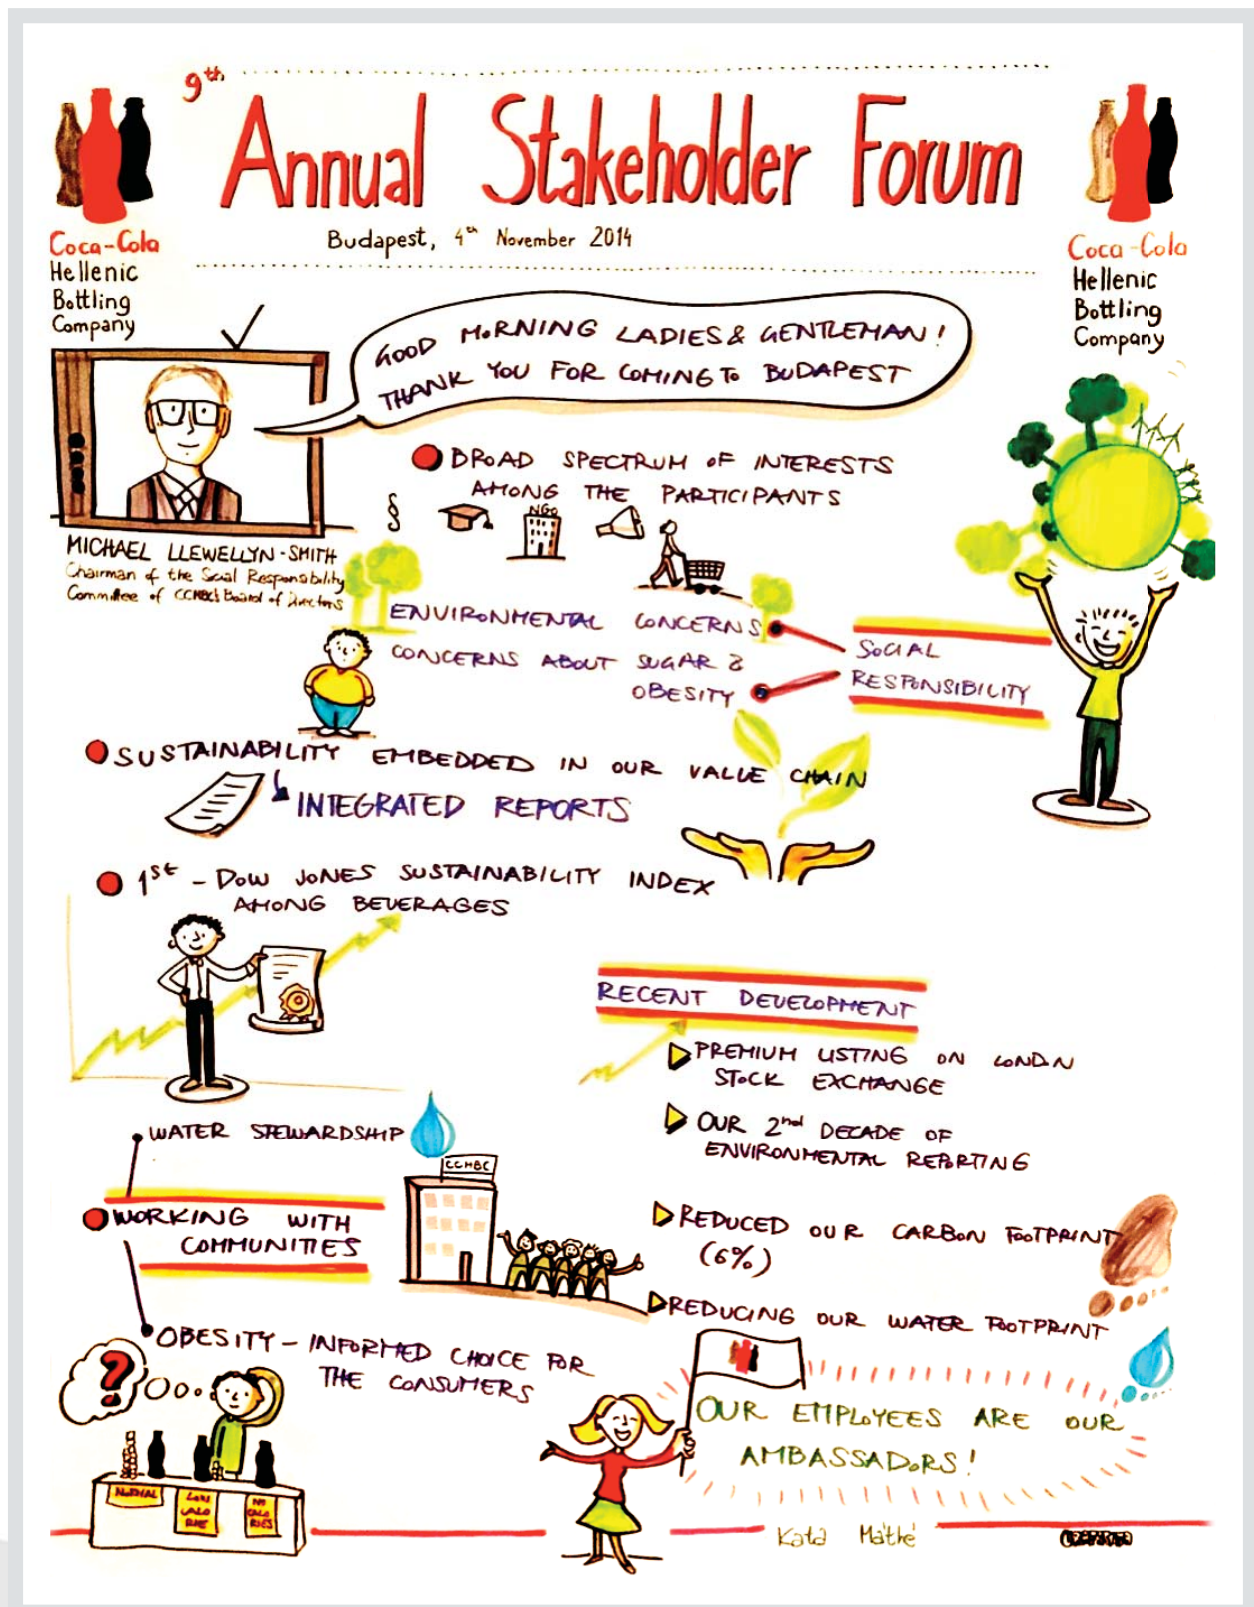 9th
Annual Stakeholder Forum
Budapest, 4th November 2014
Coca-Cola
Hellenic
Bottling
Company
Coca-Cola
Hellenic
Bottling
Company
GOOD MORNING LADIES & GENTLEMAN!
THANK YOU FOR COMING TO BUDAPEST
MICHAEL LLEWELLYN-SMITH
Chairman of the Social Responsability
Committee of CCHBC's Board of Directors
BROAD SPECTRUM OF INTERESTS
AMONG THE PARTICIPANTS
§
NGO
ENVIRONMENTAL CONCERNS
CONCERNS ABOUT SUGAR &
OBESITY
SOCIAL
RESPONSIBILITY
SUSTAINABILITY EMBEDDED IN OUR VALUE CHAIN
INTEGRATED REPORTS
1st - DOW JONES SUSTAINABILITY INDEX
AMONG BEVERAGES
RECENT DEVELOPMENT
PREMIUM LISTING ON LONDON
STOCK EXCHANGE
OUR 2nd DECADE OF
ENVIRONMENTAL REPORTING
REDUCED OUR CARBON FOOTPRINT
(6%)
REDUCING OUR WATER FOOTPRINT
WATER STEWARDSHIP
CCHBC
WORKING WITH
COMMUNITIES
OBESITY - INFORMED CHOICE FOR
THE CONSUMERS
?
NORMAL
LOW
CALO
RIE
NO
CALO
RIES
OUR EMPLOYEES ARE OUR
AMBASSADORS!
Kata Máthé